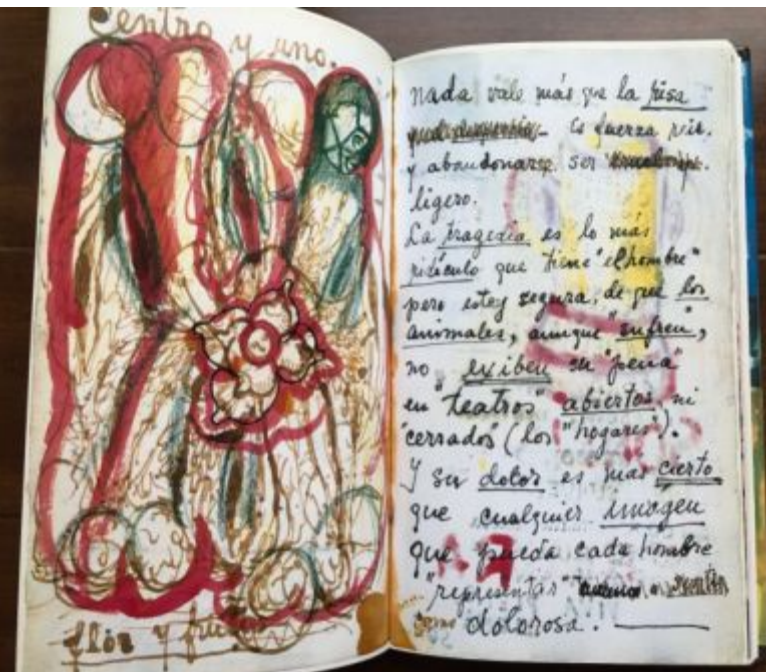 Centro y uno.
flor y fruto
nada vale más que la risa
Es fuerza reír.
y abandonarse. ser
ligero.
La tragedia es lo más
ridículo que tiene "el hombre"
pero estoy segura, de que los
animales, aunque "sufren",
no exiben su "pena"
en "teatros" abiertos, ni
"cerrados" (los "hogares").
Y su dolor es mas cierto
que cualquier imágen
que pueda cada hombre
"representar"
como dolorosa.